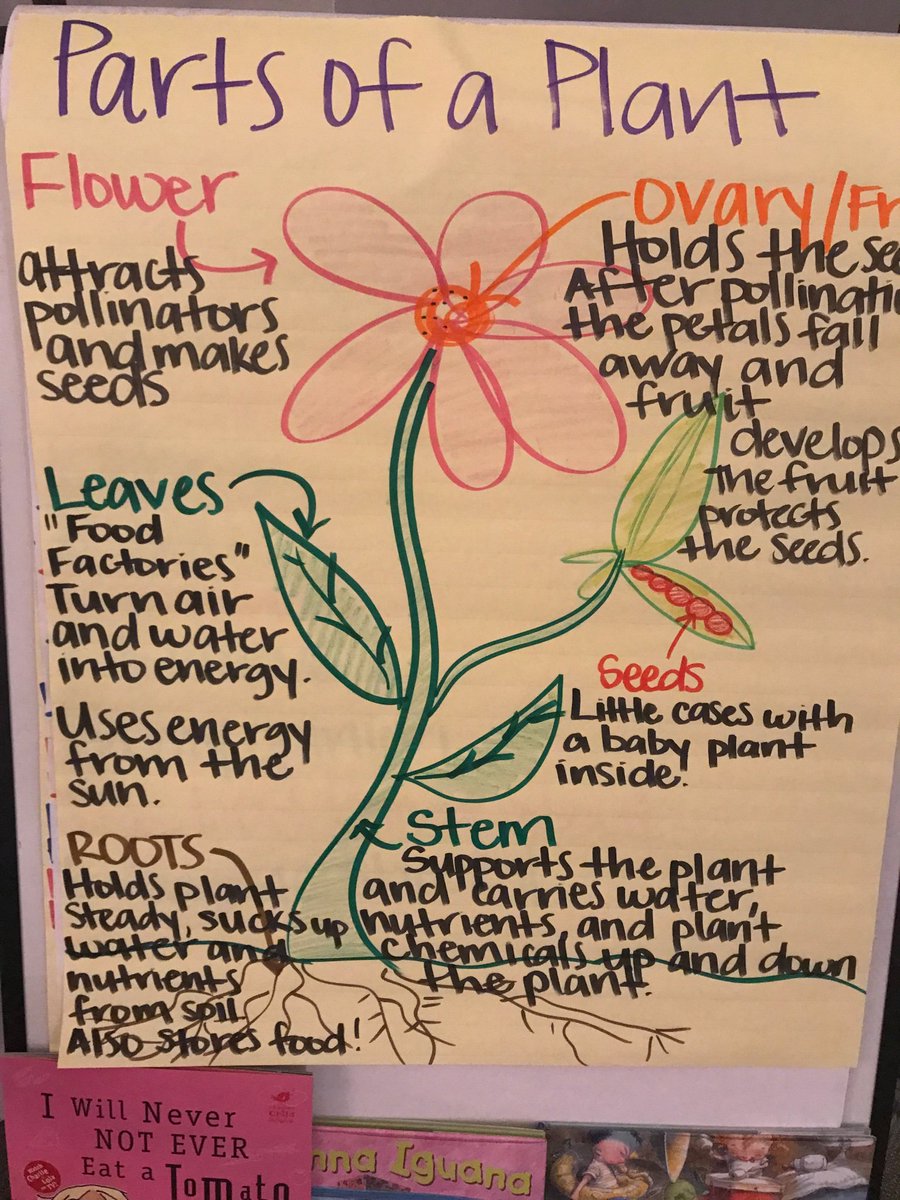 Parts of a Plant
Flower
attracts
pollinators
and makes
seeds
Ovary/Fr
Holds the see
After pollinatio
the petals fall
away and
fruit
develops
The fruit
protects
the seeds.
Leaves
"Food
Factories"
Turn air
and water
into energy.
Uses energy
from the
sun.
Seeds
Little cases with
a baby plant
inside.
Stem
Supports the plant
and carries water,
nutrients, and plant
chemicals up and down
the plant.
ROOTS
Holds plant
steady, sucks up
water and
nutrients
from soil
Also stores food!
I Will Never
NOT EVER
Eat a Tomato
nna Iguana